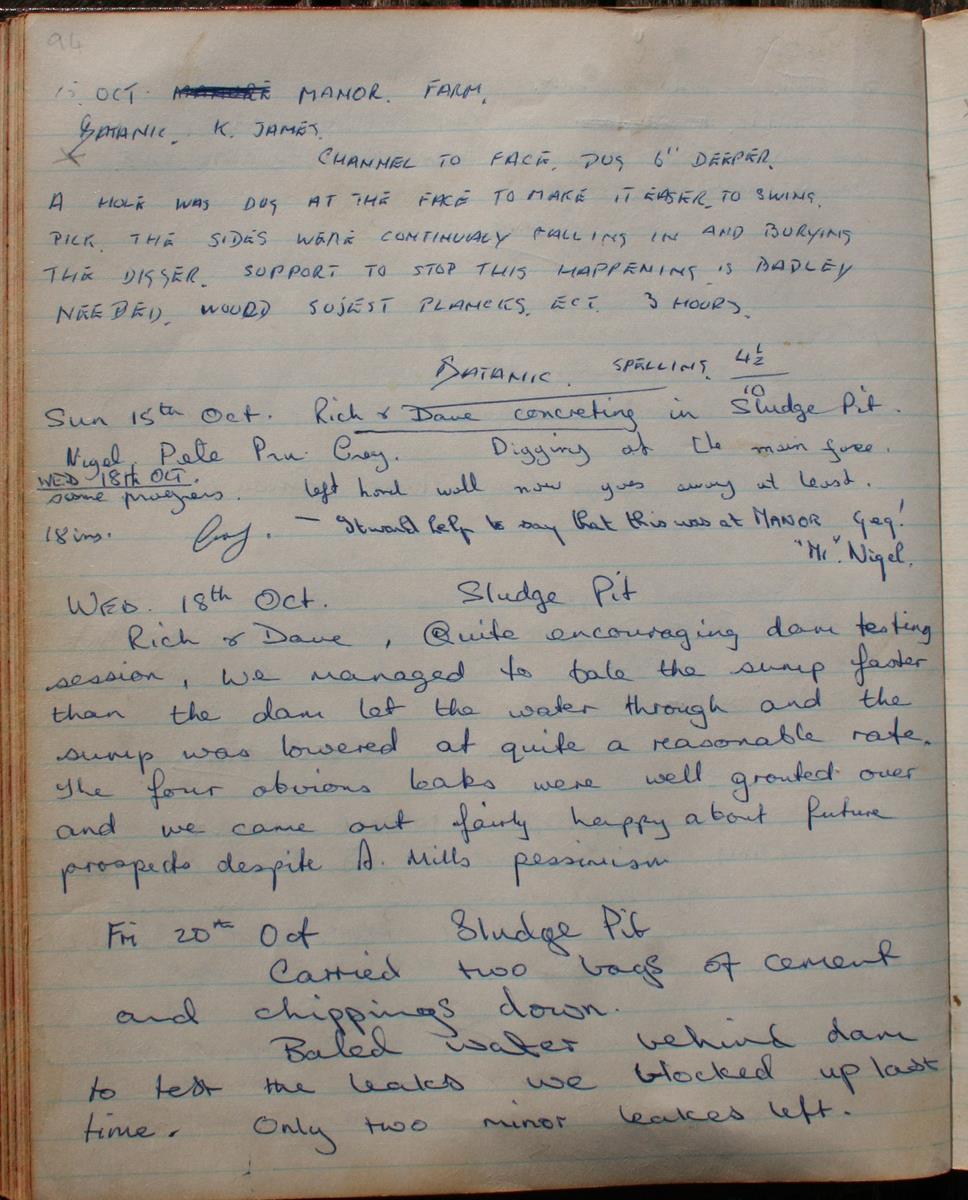 94
15. OCT. MANOR. FARM.
SATANIC. K. JAMES.
CHANNEL TO FACE. DUG 6" DEEPER.
A HOLE WAS DUG AT THE FACE TO MAKE IT EASER. TO SWING.
PICK. THE SIDES WERE CONTINUALY FALLING IN AND BURYING
THE DIGGER. SUPPORT TO STOP THIS HAPPENING IS BADLEY
NEEDED. WOURD SUJEST PLANCKS. ECT. 3 HOURS.
SATANIC. SPELLING. 4½/10
Sun 15th Oct. Rich & Dave concreting in Sludge Pit.
Nigel. Pete Pru. Greg. Digging at the main face.
WED 18th OCT.
some progress. left hand wall now goes away at least.
18 ins. Greg. – It would help to say that this was at MANOR Geg!
"Mr". Nigel.
WED. 18th Oct. Sludge Pit
Rich & Dave, Quite encouraging dam testing
session, we managed to bale the sump faster
than the dam let the water through and the
sump was lowered at quite a reasonable rate.
The four obvious leaks were well grouted over
and we came out fairly happy about future
prospects despite A. Mills pessimism
Fri 20th Oct Sludge Pit
Carried two bags of cement
and chippings down.
Baled water behind dam
to test the leaks we blocked up last
time. Only two minor leakes left.